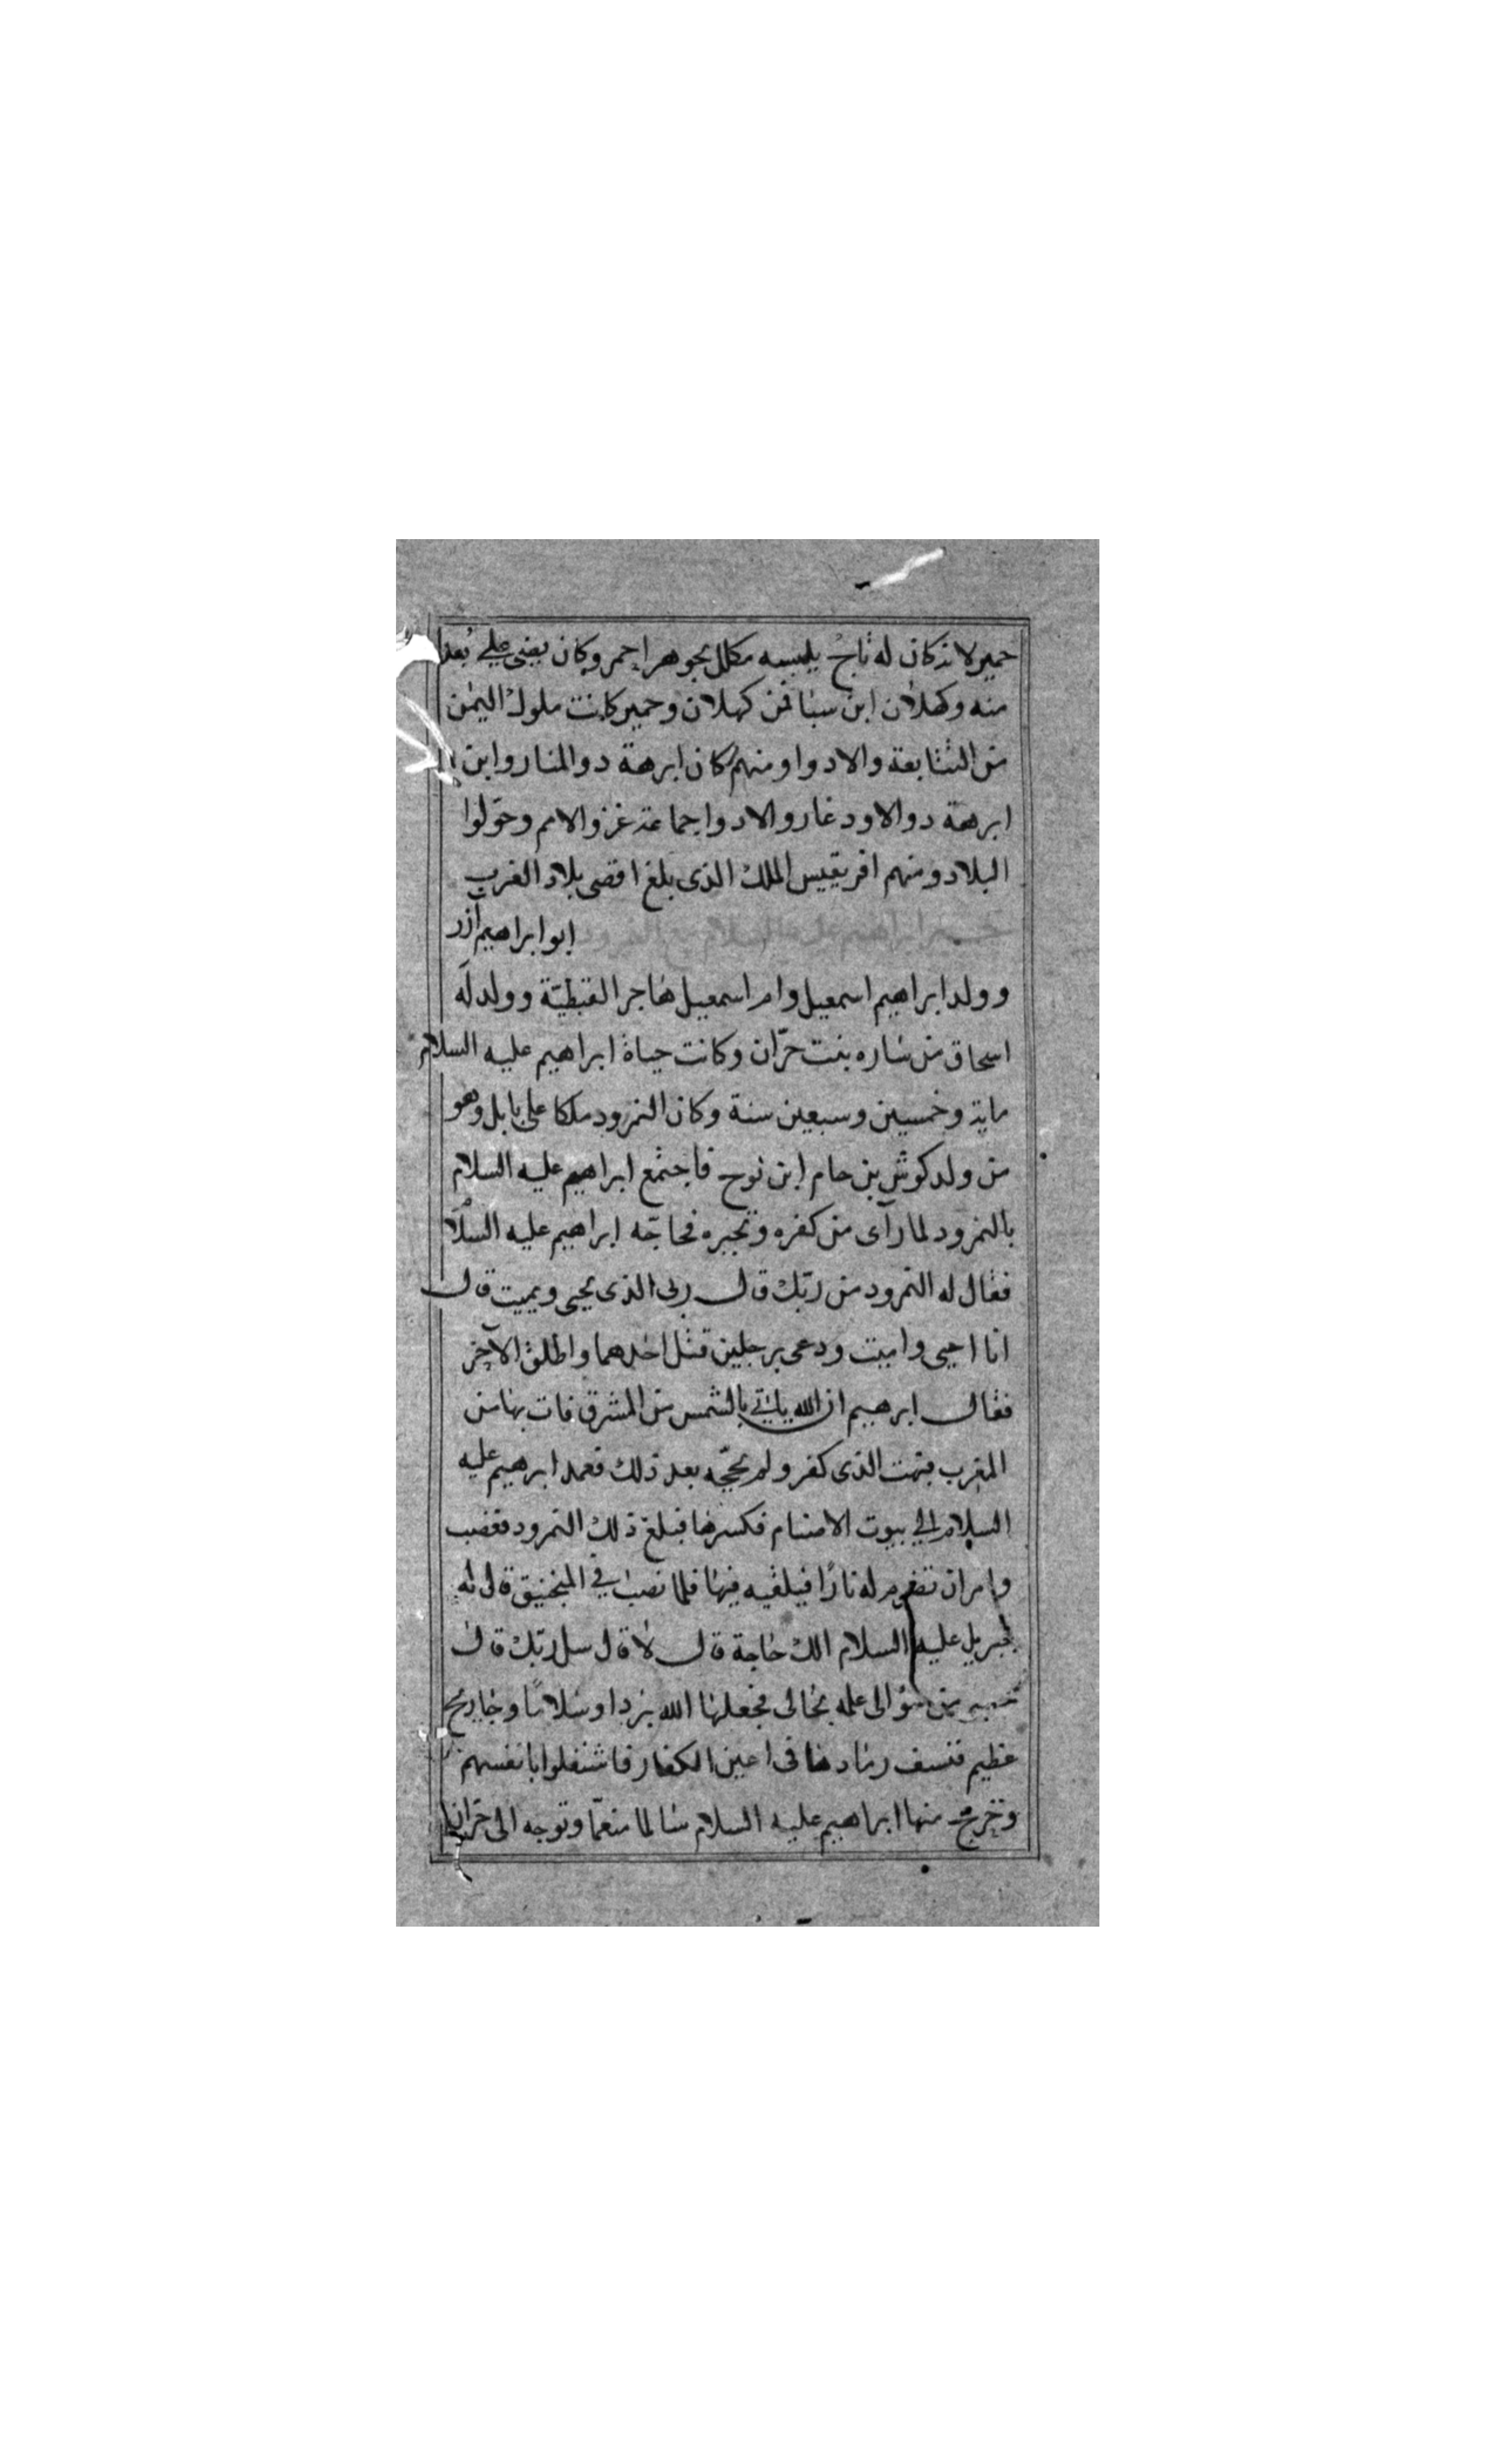 حمير لانه كان له تاج يلبسه مكلل بجوهر احمر وكان يضئ على بعد
منه وكهلان ابن سبا فمن كهلان وحمير كانت ملوك اليمن
من التتابعة والادوا ومنهم كان ابرهة دو المنار وابن
ابرهة دو الاودغار والادوا جماعة غزوا الامم وحولوا
البلاد ومنهم افريقيس الملك الذى بلغ اقصى بلاد الغرب
خبر ابراهيم عليه السلام مع النمرود ابو ابراهيم آزر
وولد ابراهيم اسمعيل وام اسمعيل هاجر القبطية وولد له
اسحاق من ساره بنت حرّان وكانت حياة ابراهيم عليه السلام
ماية وخمسين وسبعين سنة وكان النمرود ملكا على بابل وهو
من ولد كوش بن حام ابن نوح فاجتمع ابراهيم عليه السلام
بالنمرود لما رآى من كفره وتجبره فحاجّه ابراهيم عليه السلام
فقال له النمرود من ربّك قال ربى الذى يحيى ويميت قال
انا احيى واميت ودعى برجلين قتل احدهما واطلق الآخر
فقال ابرهيم ان الله ياتي بالشمس من المشرق فات بها من
المغرب فبهت الذى كفر ولم يحجّه بعد ذلك فعمد ابرهيم عليه
السلام الي بيوت الاصنام فكسرها فبلغ ذلك النمرود فغضب
وامر ان تضرم له نارًا فيلقيه فيها فلما نصب في المنجنيق قال له
جبريل عليه السلام الك حاجة قال لا قال سل ربّك قال
حسبى من سؤالى علمه بحالى فجعلها الله بردا وسلامًا وجا ريح
عظيم فنسف رمادها فى اعين الكفار فاشتغلوا بانفسهم
وخرج منها ابراهيم عليه السلام سالما منعمّا وتوجه الى حرّان